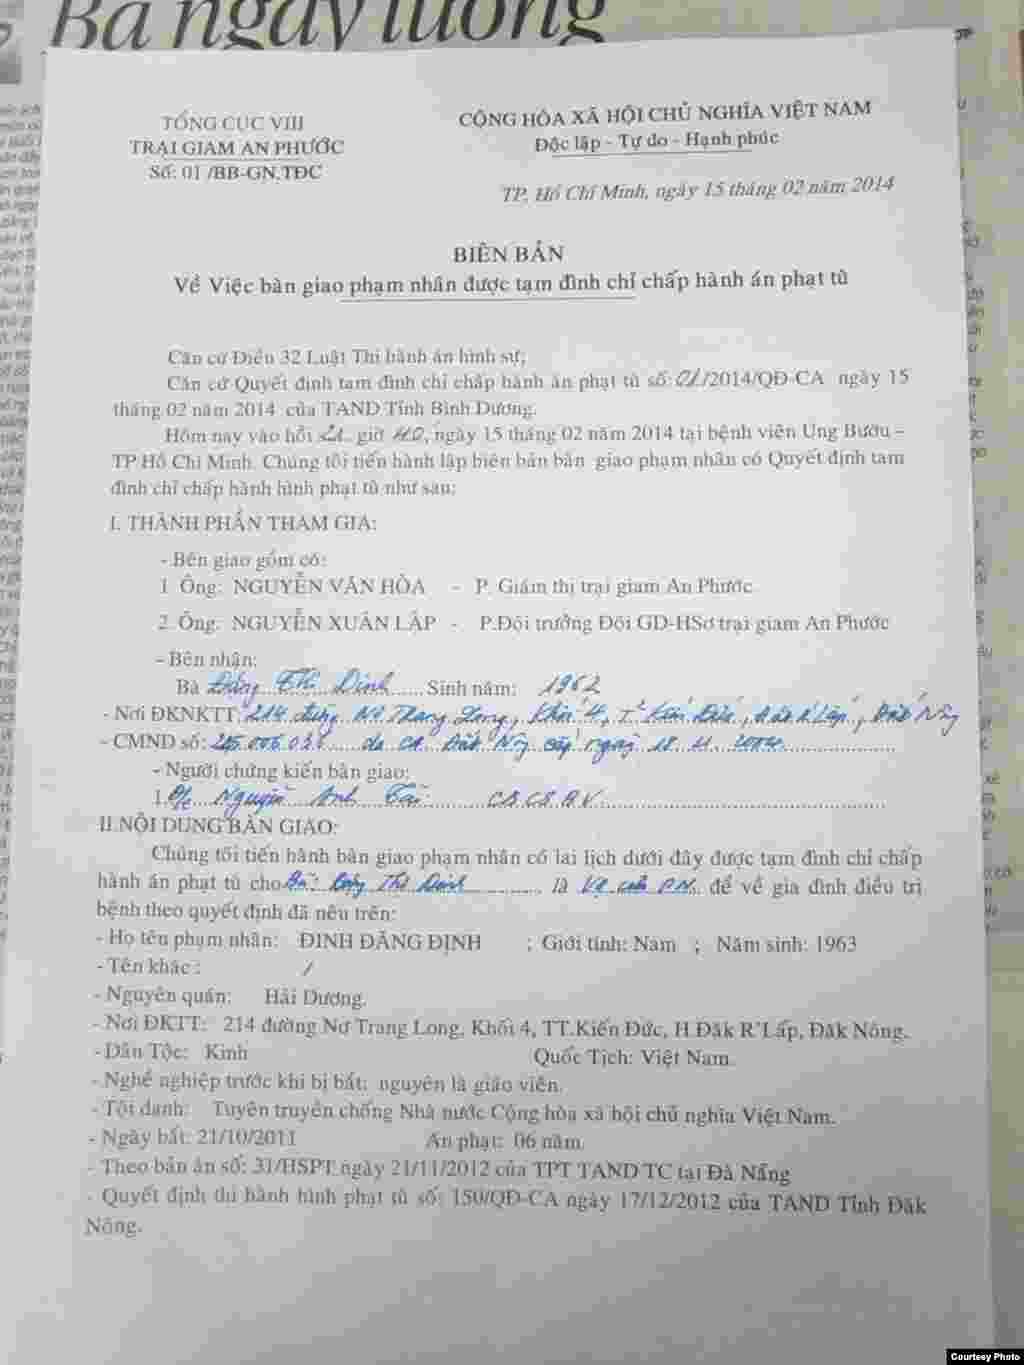 Ba ngày lương
TỔNG CỤC VIII
TRẠI GIAM AN PHƯỚC
Số: 01 /BB-GN,TĐC
CỘNG HÒA XÃ HỘI CHỦ NGHĨA VIỆT NAM
Độc lập - Tự do - Hạnh phúc
TP. Hồ Chí Minh, ngày 15 tháng 02 năm 2014
BIÊN BẢN
Về Việc bàn giao phạm nhân được tạm đình chỉ chấp hành án phạt tù
Căn cứ Điều 32 Luật Thi hành án hình sự;
Căn cứ Quyết định tạm đình chỉ chấp hành án phạt tù số: 01/2014/QĐ-CA ngày 15
tháng 02 năm 2014 của TAND Tỉnh Bình Dương.
Hôm nay vào hồi 21 giờ 40, ngày 15 tháng 02 năm 2014 tại bệnh viên Ung Bướu –
TP Hồ Chí Minh. Chúng tôi tiến hành lập biên bản bàn giao phạm nhân có Quyết định tạm
đình chỉ chấp hành hình phạt tù như sau:
I. THÀNH PHẦN THAM GIA:
- Bên giao gồm có:
1. Ông: NGUYỄN VĂN HÒA - P. Giám thị trại giam An Phước
2. Ông: NGUYỄN XUÂN LẬP - P.Đội trưởng Đội GD-HSơ trại giam An Phước
- Bên nhận:
Bà Đặng Thị Dinh Sinh năm: 1962
- Nơi ĐKNKTT: 214 đường Nơ Trang Long, Khối 4, TT Kiến Đức, Đăk R'Lấp, Đăk Nông
- CMND số: do CA Đăk Nông cấp ngày 18
- Người chứng kiến bàn giao:
1. Đ/c Nguyễn Anh Tài
II.NỘI DUNG BÀN GIAO:
Chúng tôi tiến hành bàn giao phạm nhân có lai lịch dưới đây được tạm đình chỉ chấp
hành án phạt tù cho Bà: Đặng Thị Dinh là Vợ của P.N. để về gia đình điều trị
bệnh theo quyết định đã nêu trên:
- Họ tên phạm nhân: ĐINH ĐĂNG ĐỊNH ; Giới tính: Nam ; Năm sinh: 1963
- Tên khác : /
- Nguyên quán: Hải Dương.
- Nơi ĐKTT: 214 đường Nơ Trang Long, Khối 4, TT.Kiến Đức, H.Đăk R'Lấp, Đăk Nông.
- Dân Tộc: Kinh Quốc Tịch: Việt Nam.
- Nghề nghiệp trước khi bị bắt: nguyên là giáo viên.
- Tội danh: Tuyên truyền chống Nhà nước Cộng hòa xã hội chủ nghĩa Việt Nam.
- Ngày bắt: 21/10/2011 Án phạt: 06 năm.
- Theo bản án số: 31/HSPT ngày 21/11/2012 của TPT TAND TC tại Đà Nẵng
- Quyết định thi hành hình phạt tù số: 150/QĐ-CA ngày 17/12/2012 của TAND Tỉnh Đăk
Nông.
Courtesy Photo